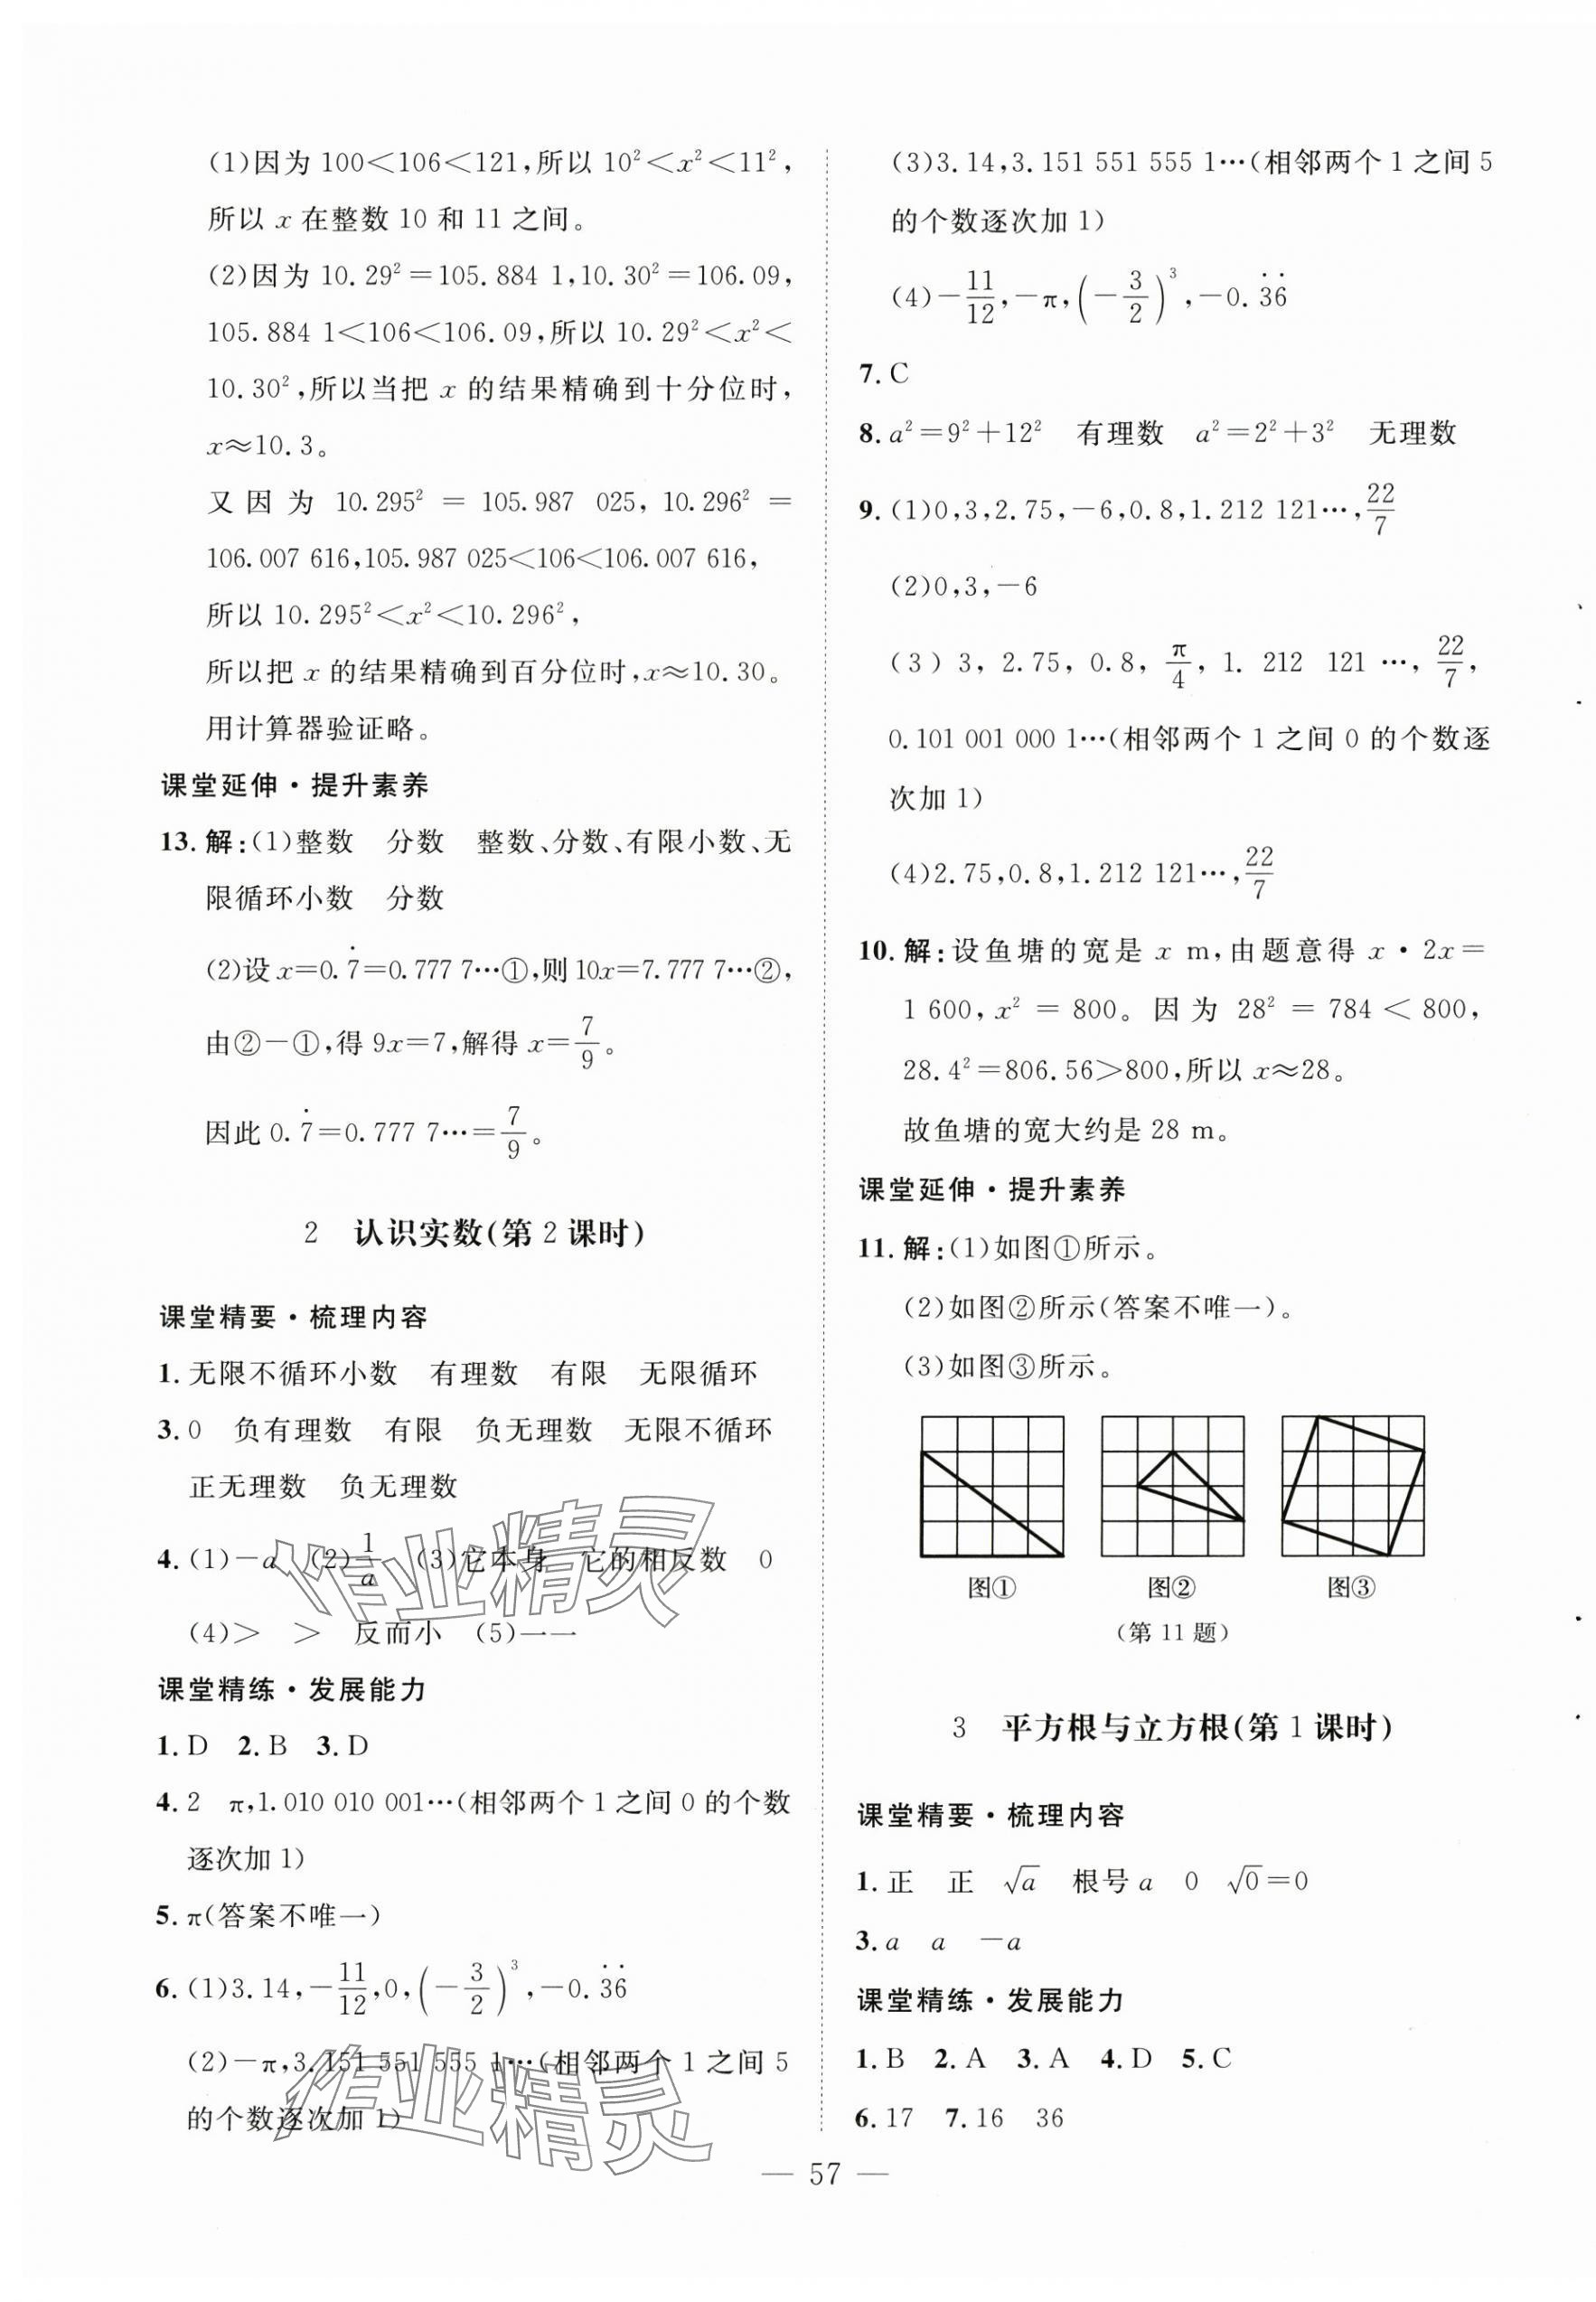 (1)因为 100＜106＜121,所以 10²＜x²＜11²,
所以 x 在整数 10 和 11 之间。
(2)因为 10.29²=105.884 1,10.30²=106.09,
105.884 1＜106＜106.09,所以 10.29²＜x²＜
10.30²,所以当把 x 的结果精确到十分位时,
x≈10.3。
又因为 10.295² = 105.987 025, 10.296² =
106.007 616,105.987 025＜106＜106.007 616,
所以 10.295²＜x²＜10.296²,
所以把 x 的结果精确到百分位时,x≈10.30。
用计算器验证略。
课堂延伸·提升素养
13.解:(1)整数　分数　整数、分数、有限小数、无
限循环小数　分数
(2)设 x=0.7̇=0.777 7…①,则 10x=7.777 7…②,
由②-①,得 9x=7,解得 x=7/9。
因此 0.7̇=0.777 7…=7/9。
2　认识实数(第 2 课时)
课堂精要·梳理内容
1.无限不循环小数　有理数　有限　无限循环
3.0　负有理数　有限　负无理数　无限不循环
正无理数　负无理数
4.(1)-a　(2)1/a　(3)它本身　它的相反数　0
(4)＞　＞　反而小　(5)一一
课堂精练·发展能力
1.D　2.B　3.D
4.2　π,1.010 010 001…(相邻两个 1 之间 0 的个数
逐次加 1)
5.π(答案不唯一)
6.(1)3.14,-11/12,0,(-3/2)³,-0.3̇6̇
(2)-π,3.151 551 555 1…(相邻两个 1 之间 5
的个数逐次加 1)
(3)3.14,3.151 551 555 1…(相邻两个 1 之间 5
的个数逐次加 1)
(4)-11/12,-π,(-3/2)³,-0.3̇6̇
7.C
8.a²=9²+12²　有理数　a²=2²+3²　无理数
9.(1)0,3,2.75,-6,0.8,1.212 121…,22/7
(2)0,3,-6
(3)3, 2.75, 0.8, π/4, 1.212 121…, 22/7,
0.101 001 000 1…(相邻两个 1 之间 0 的个数逐
次加 1)
(4)2.75,0.8,1.212 121…,22/7
10.解:设鱼塘的宽是 x m,由题意得 x·2x=
1 600, x² = 800。因为 28² = 784 ＜ 800,
28.4²=806.56＞800,所以 x≈28。
故鱼塘的宽大约是 28 m。
课堂延伸·提升素养
11.解:(1)如图①所示。
(2)如图②所示(答案不唯一)。
(3)如图③所示。
图①　图②　图③
(第 11 题)
3　平方根与立方根(第 1 课时)
课堂精要·梳理内容
1.正　正　√a　根号 a　0　√0=0
3.a　a　-a
课堂精练·发展能力
1.B　2.A　3.A　4.D　5.C
6.17　7.16　36
— 57 —
作业精灵
作业精灵